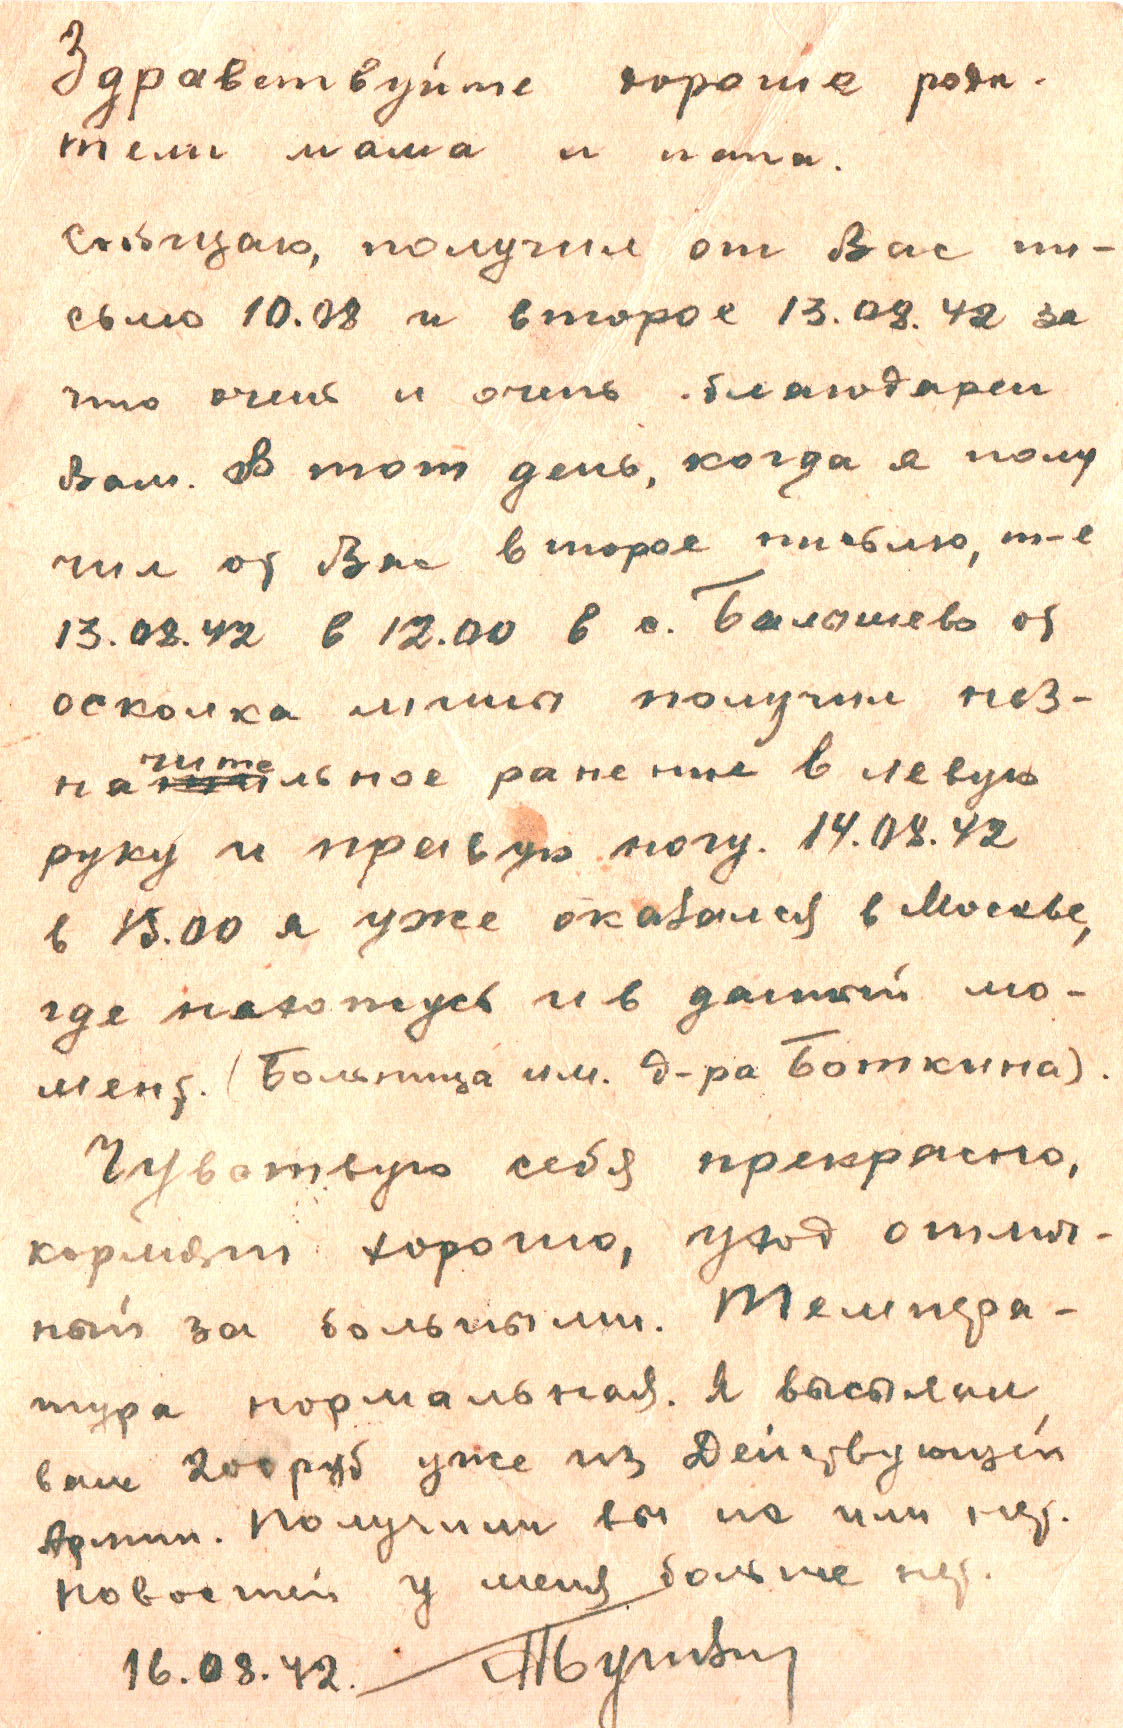 Здравствуйте хорошие роди-
тели мама и папа.
Сообщаю, получил от Вас пи-
сьмо 10.08 и второе 13.08.42 за
что очень и очень благодарен
Вам. В тот день, когда я полу
чил от Вас второе письмо, т-е
13.08.42 в 12.00 в с. от
осколка мины получил нез-
начительное ранение в левую
руку и правую ногу. 14.08.42
в 15.00 я уже оказался в Москве,
где нахожусь и в данный мо-
мент. (Больница им. д-ра Боткина).
Чувствую себя прекрасно,
кормят хорошо, уход отлич-
ный за больными. Темпера-
тура нормальная. Я высылал
вам 200 руб уже из Действующей
Армии. Получили вы их или нет.
Новостей у меня больше нет.
16.08.42.